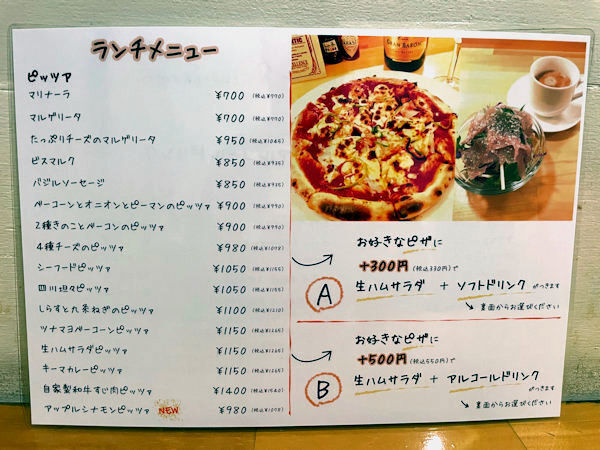 ランチメニュー
ピッツァ
マリナーラ ¥700 (税込¥770)
マルゲリータ ¥700 (税込¥770)
たっぷりチーズのマルゲリータ ¥950 (税込¥1045)
ビスマルク ¥850 (税込¥935)
バジルソーセージ ¥850 (税込¥935)
ベーコーンとオニオンとピーマンのピッツァ ¥900 (税込¥990)
2種きのことベーコンのピッツァ ¥900 (税込¥990)
4種チーズのピッツァ ¥980 (税込¥1078)
シーフードピッツァ ¥1050 (税込¥1155)
四川坦々ピッツァ ¥1050 (税込¥1155)
しらすと九条ねぎのピッツァ ¥1100 (税込¥1210)
ツナマヨベーコーンピッツァ ¥1150 (税込¥1265)
生ハムサラダピッツァ ¥1150 (税込¥1265)
キーマカレーピッツァ ¥1150 (税込¥1265)
自家製和牛すじ肉ピッツァ ¥1400 (税込¥1540)
アップルシナモンピッツァ NEW ¥980 (税込¥1078)
GRAN BARON
お好きなピザに
+300円 (税込330円)で
A 生ハムサラダ + ソフトドリンク がつきます
裏面からお選びください
お好きなピザに
+500円 (税込550円)で
B 生ハムサラダ + アルコールドリンク がつきます
裏面からお選びください